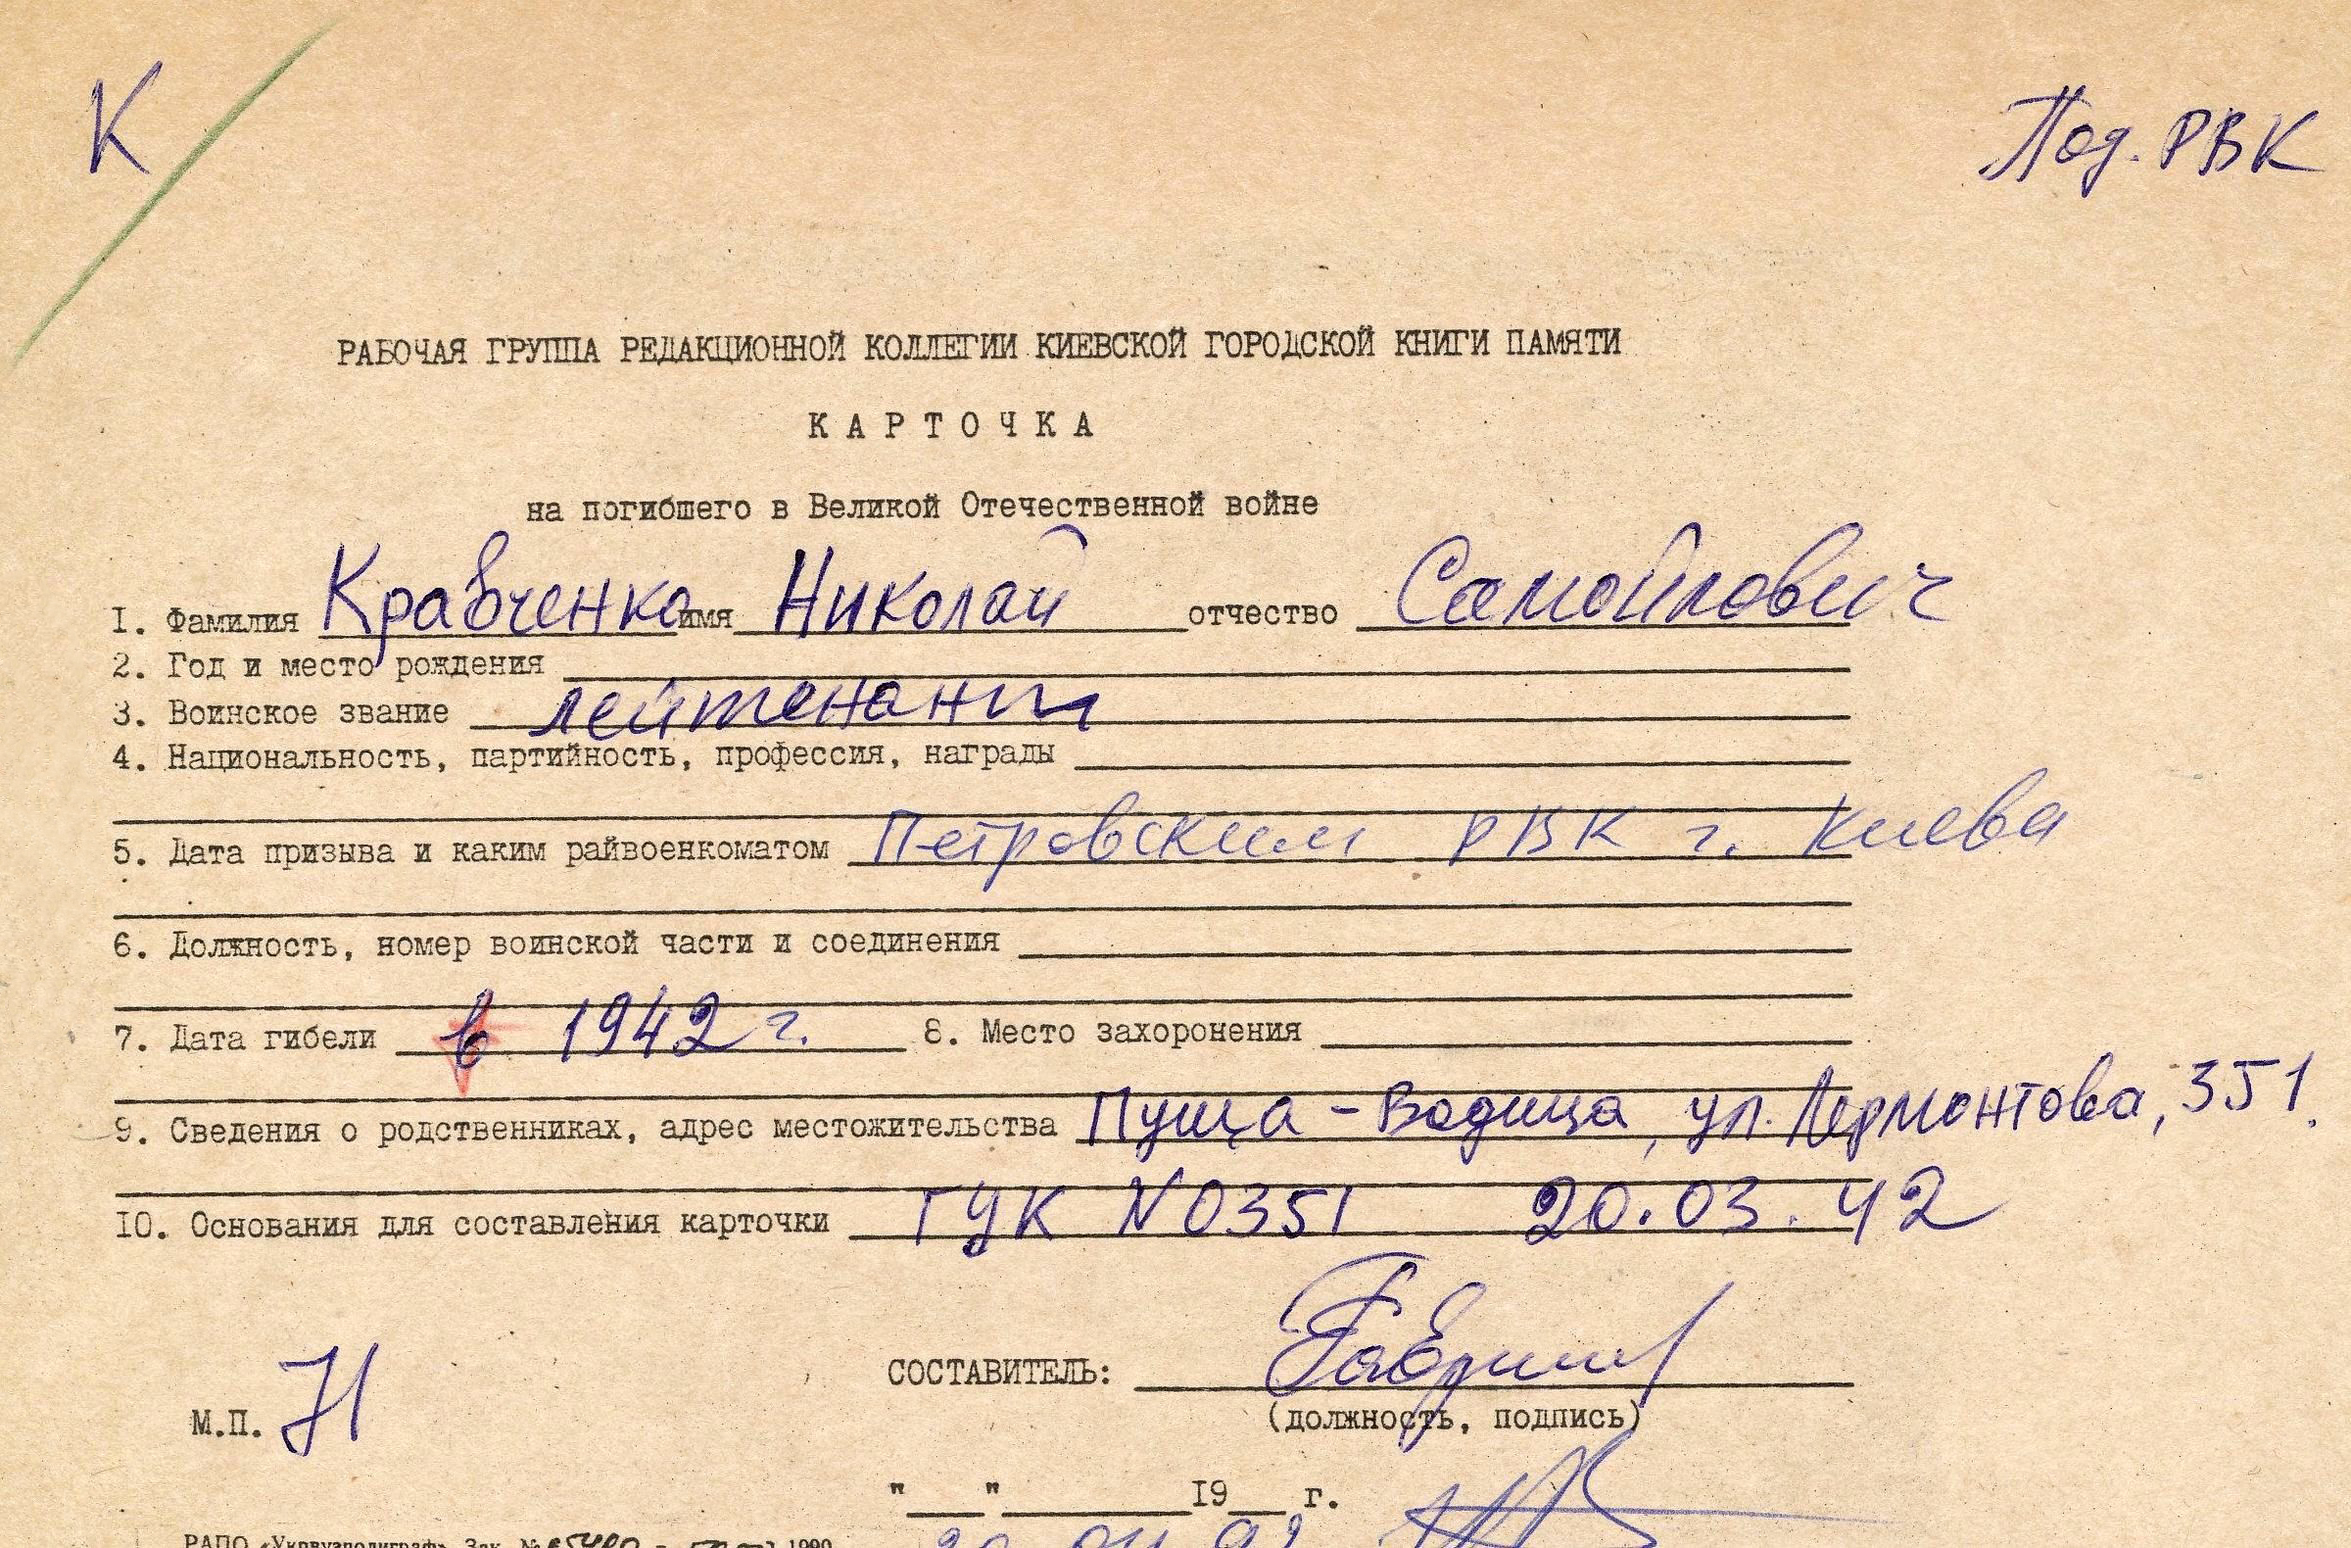 К
Под. РВК
РАБОЧАЯ ГРУППА РЕДАКЦИОННОЙ КОЛЛЕГИИ КИЕВСКОЙ ГОРОДСКОЙ КНИГИ ПАМЯТИ
КАРТОЧКА
на погибшего в Великой Отечественной войне
I. Фамилия Кравченко имя Николай отчество Самойлович
2. Год и место рождения
3. Воинское звание лейтенант
4. Национальность, партийность, профессия, награды
5. Дата призыва и каким райвоенкоматом Петровским РВК г. Киева
6. Должность, номер воинской части и соединения
7. Дата гибели в 1942 г. 8. Место захоронения
9. Сведения о родственниках, адрес местожительства Пуща-Водица, ул. Лермонтова, 351.
10. Основания для составления карточки ГУК N0351 20.03.42
СОСТАВИТЕЛЬ:
(должность, подпись)
М.П.
"___"__________19___ г.
РАПО «Укрвузполиграф» Зак. №